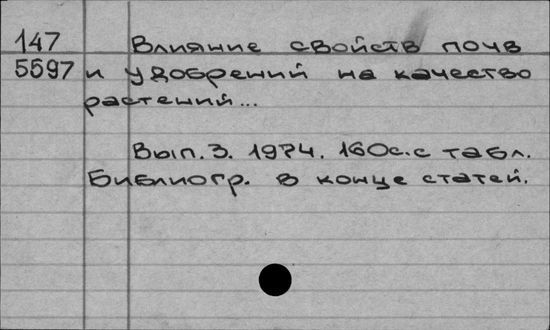 147 Влияние свойств почв
5597 и удобрений на качество
растений...
Вып. 3. 1974. 160с. с табл.
Библиогр. в конце статей.